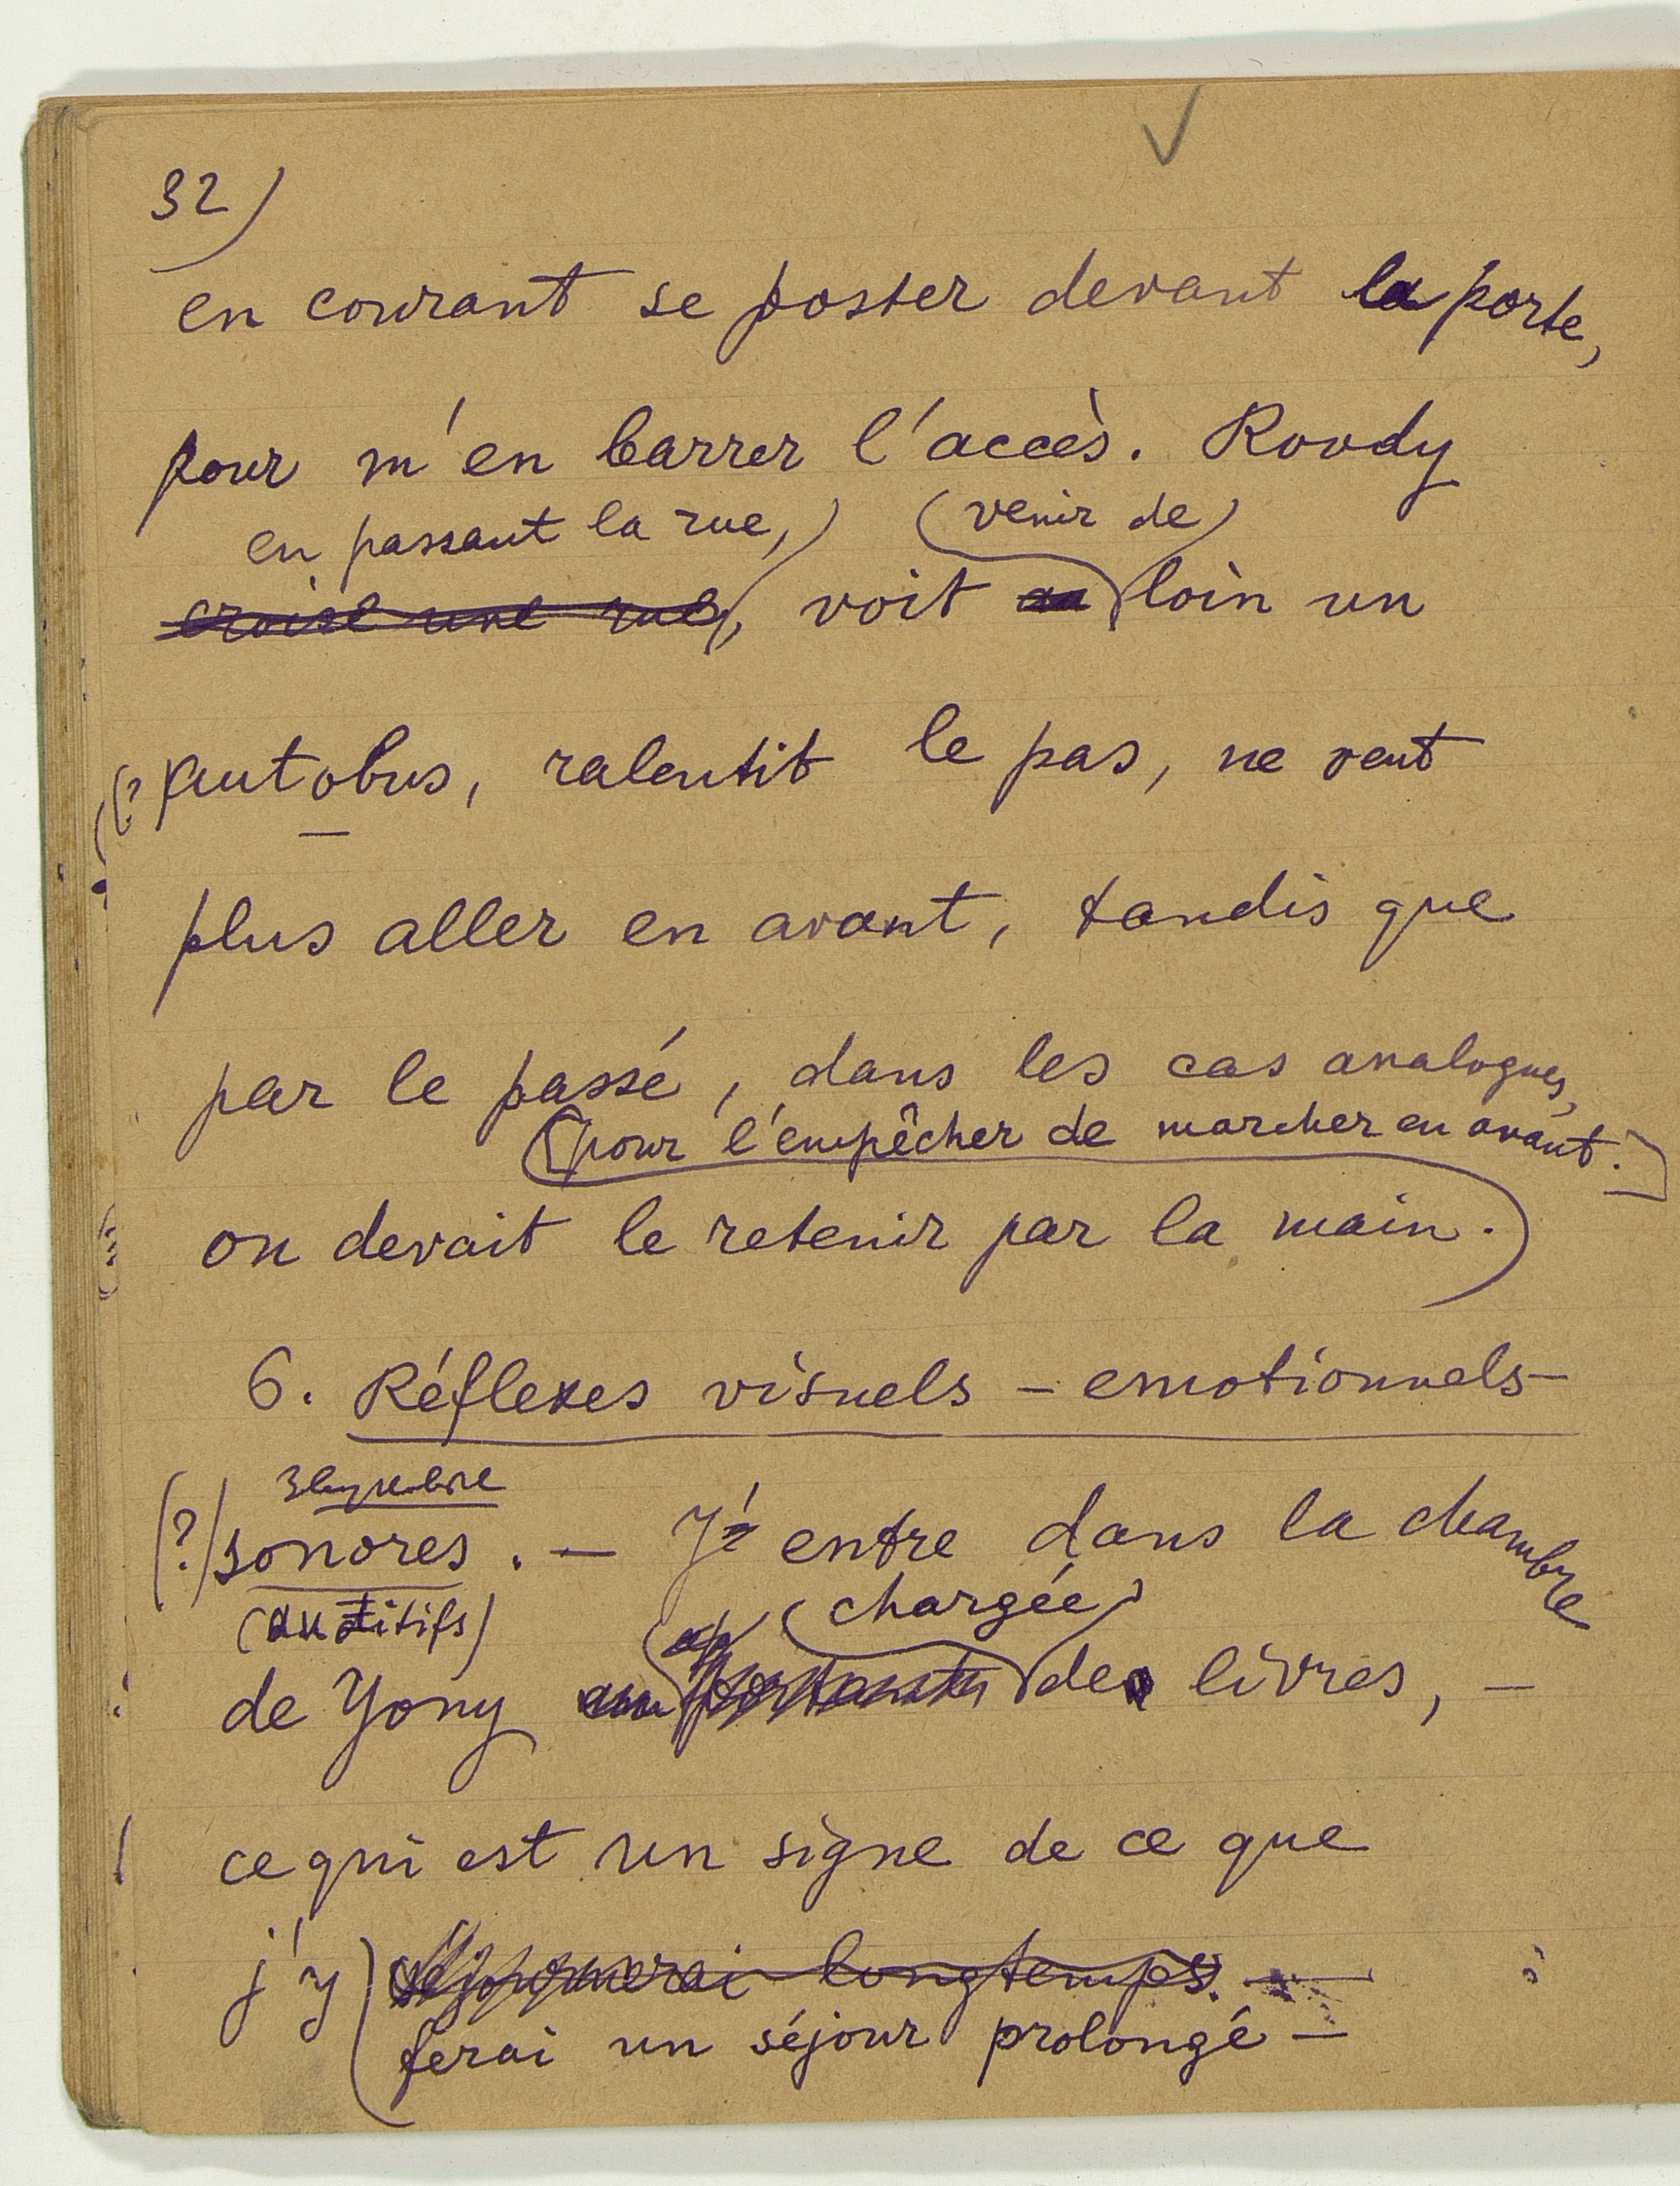 32)
en courant se poster devant la porte,
pour m'en barrer l'accès. Roody
en passant la rue, (venir de)
croise une rue, voit au loin un
(? autobus, ralentit le pas, ne veut
plus aller en avant, tandis que
par le passé, dans les cas analogues,
(pour l'empêcher de marcher en avant.
on devait le retenir par la main.
6. Réflexes visuels - emotionnels-
(?) sonores. — J'entre dans la chambre
(auditifs) chargée
de Yony de livres, —
ce qui est un signe de ce que
j'y séjournerai longtemps. —
ferai un séjour prolongé —